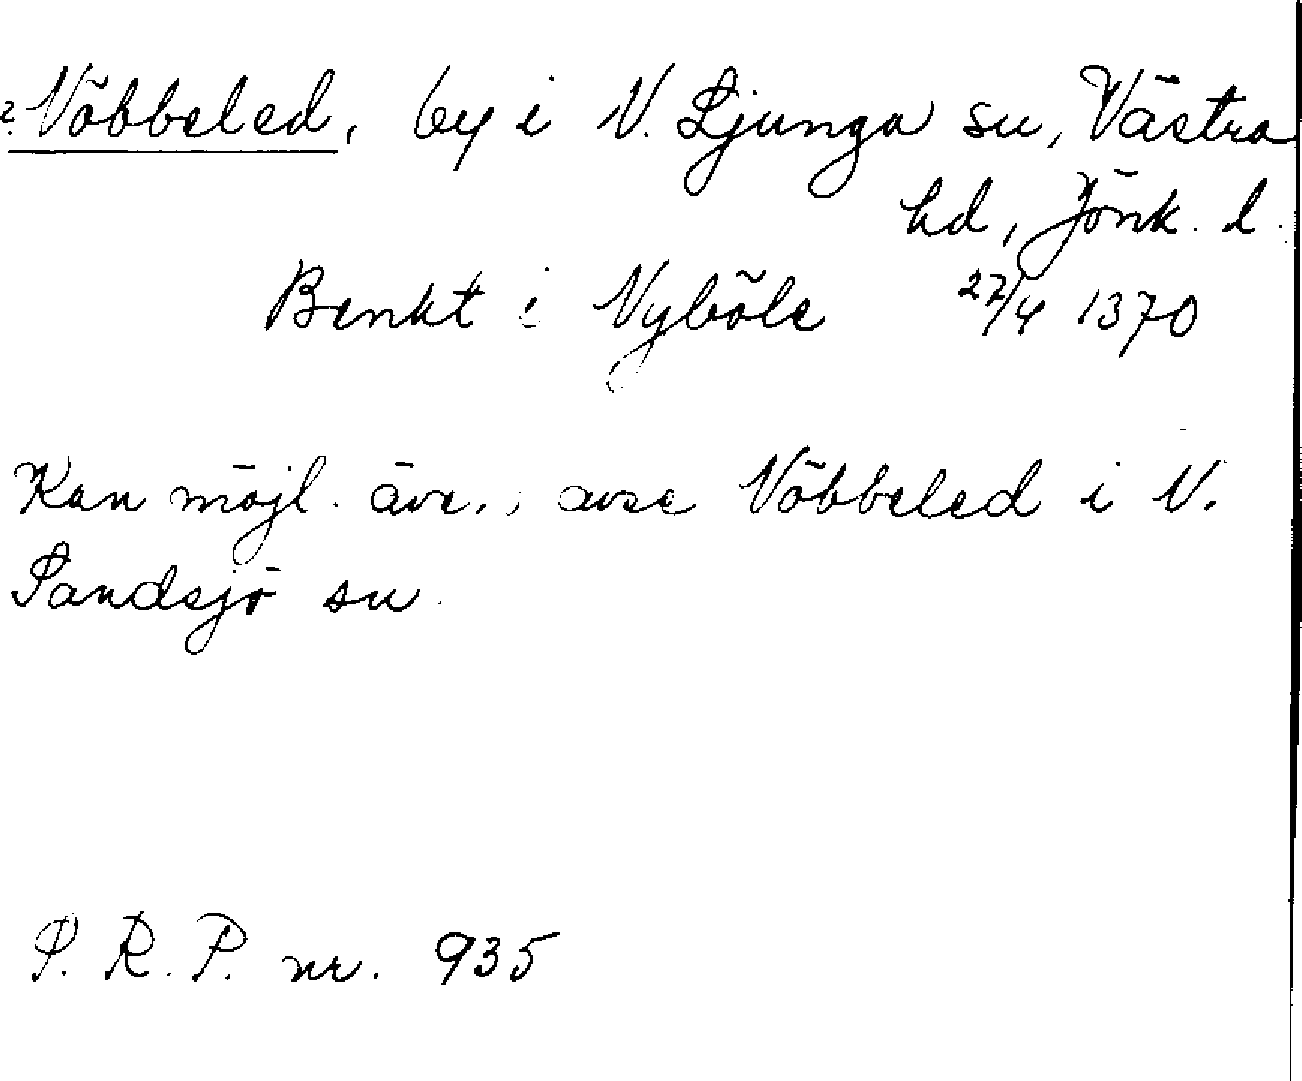 ? Vöbbeled, by i N. Ljunga sn, Västra
hd, Jönk. l.
Benkt i Nyböle 27/4 1370
Kan möjl. äve. avse Vöbbeled i N.
Sandsjö sn.
S. R. P. nr. 935